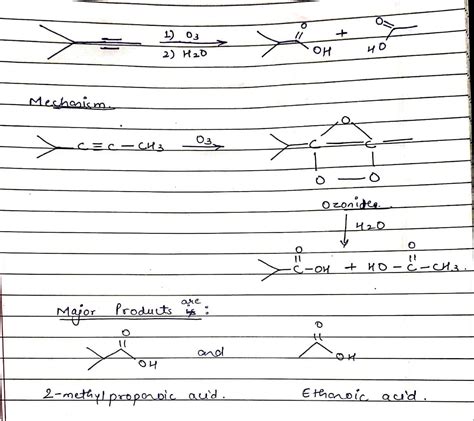 1) O3
2) H2O
O
OH
+
O
HO
Mechanism
C ≡ C - CH3
O3
O
C = C
O — O
ozonides
H2O
O
C-OH + HO - C - CH3.
O
Major Products are :
O
OH
and
O
OH
2-methylpropanoic acid.
Ethanoic acid.